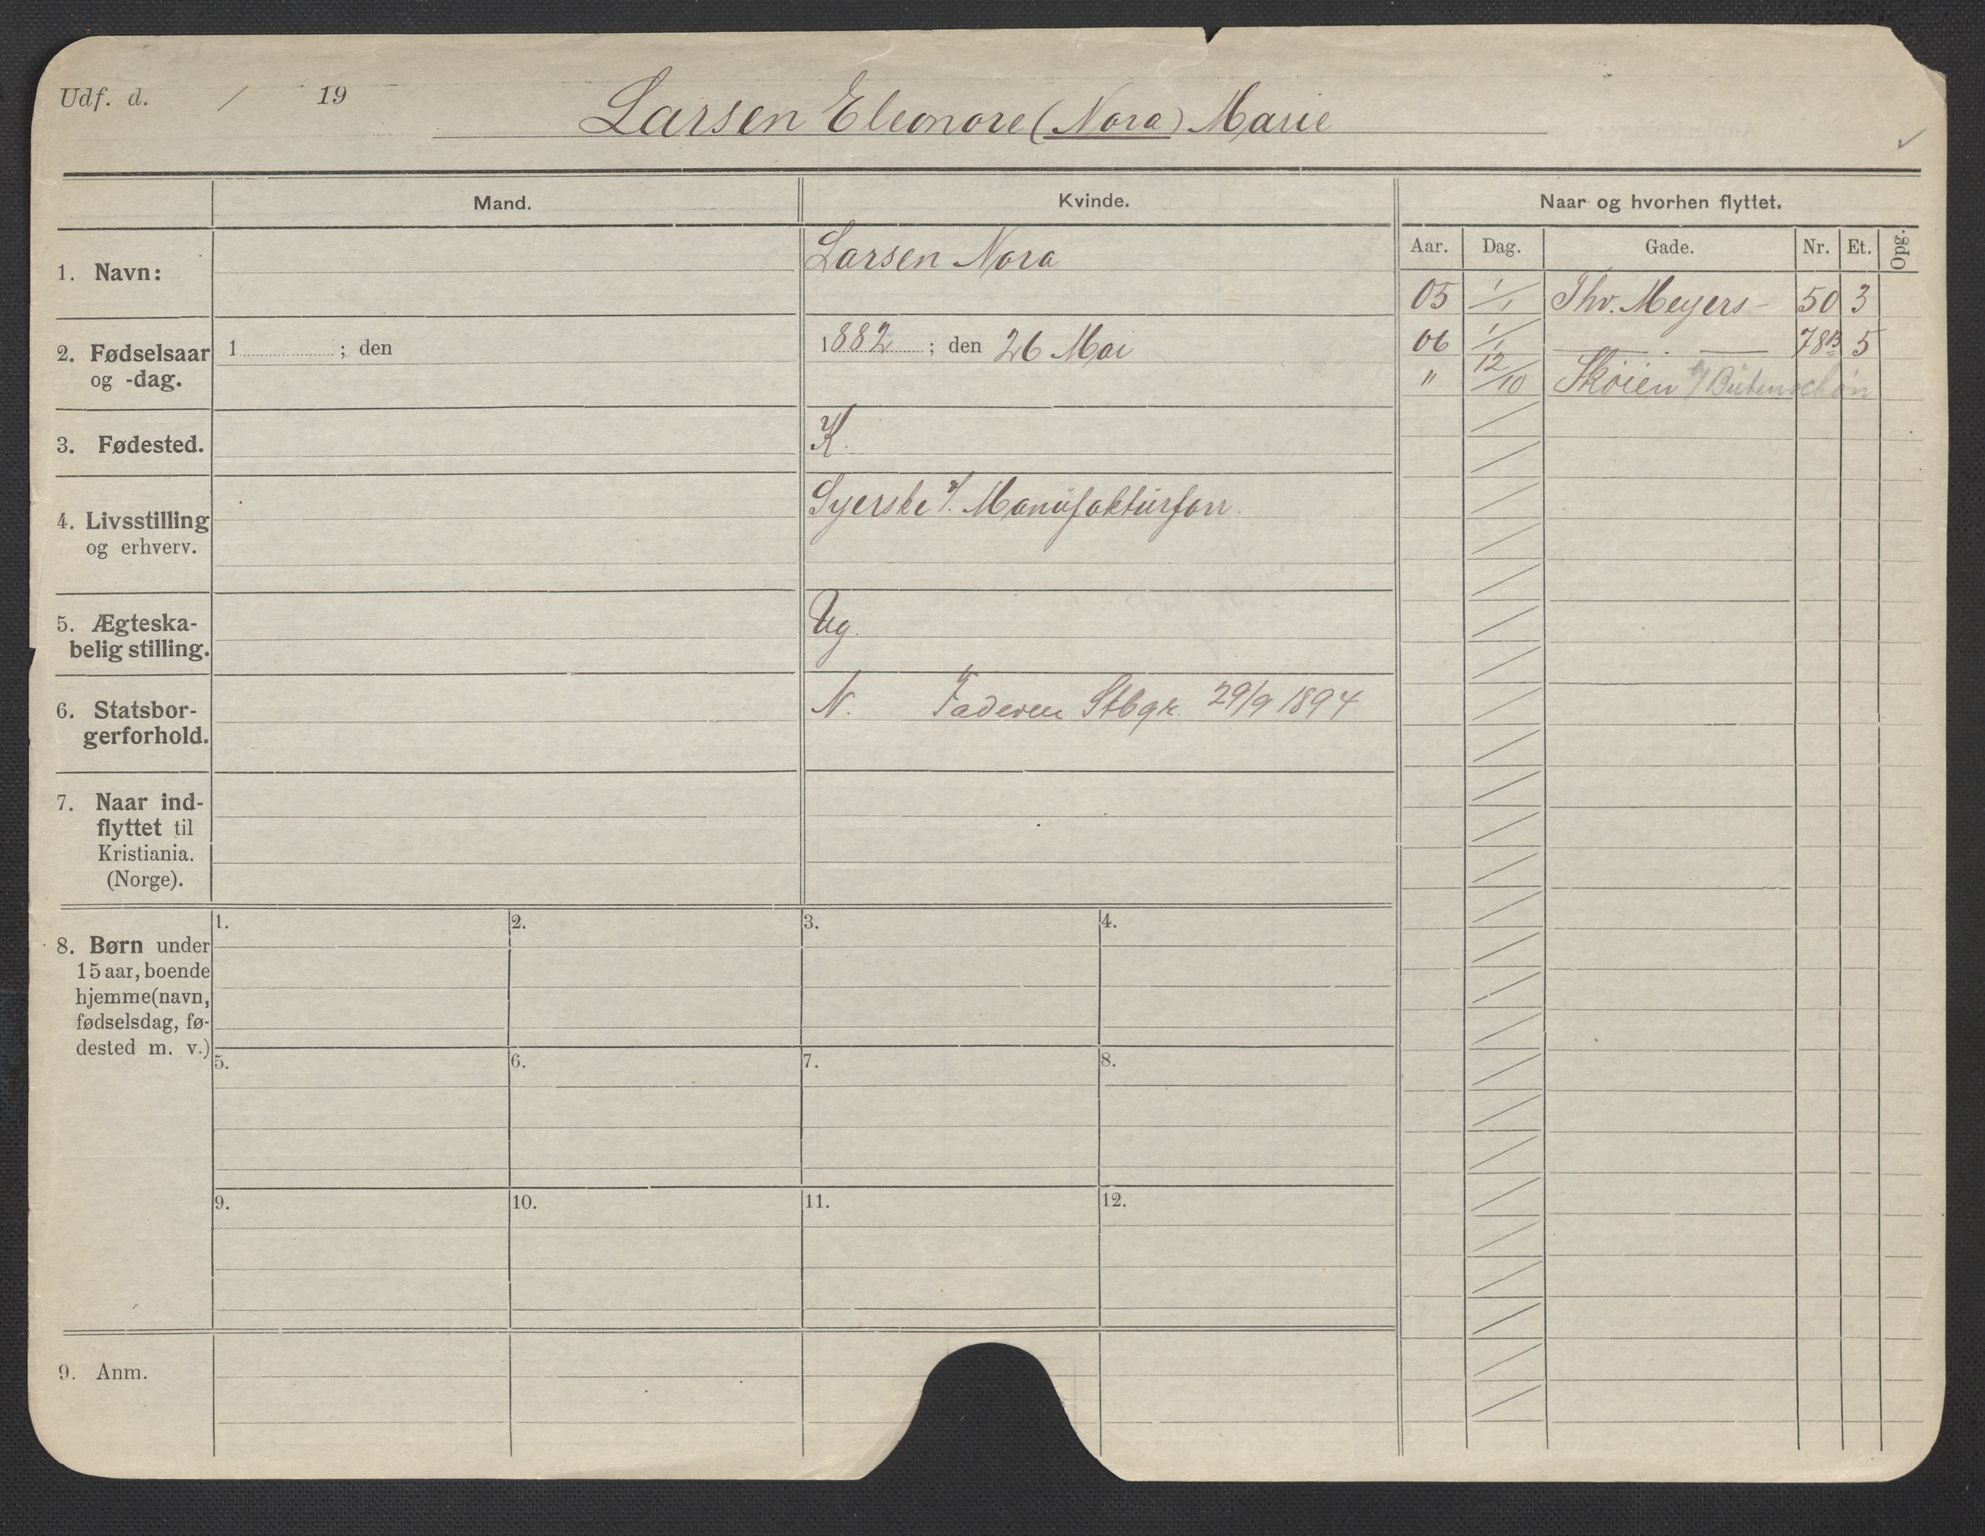 Udf. d. / 19
Larsen Eleonore (Nora) Marie
Mand. Kvinde. Naar og hvorhen flyttet.
Aar. Dag. Gade. Nr. Et. Opg.
1. Navn:
Larsen Nora
05 1/1 Thv. Meyers - 50 3
2. Fødselsaar
og -dag.
1 ; den
1882 ; den 26 Mai
06 1/1 — . — 78B 5
" 12/10 Skøien b/ Butenschøn
3. Fødested.
K.
4. Livsstilling
og erhverv.
Syerske v/. Manufakturforr.
5. Ægteska-
belig stilling.
Ug.
6. Statsbor-
gerforhold.
N. Faderen Stbgr. 29/9 1894
7. Naar ind-
flyttet til
Kristiania.
(Norge).
8. Børn under
15 aar, boende
hjemme (navn,
fødselsdag, fø-
dested m. v.)
1. 2. 3. 4.
5. 6. 7. 8.
9. 10. 11. 12.
9. Anm.